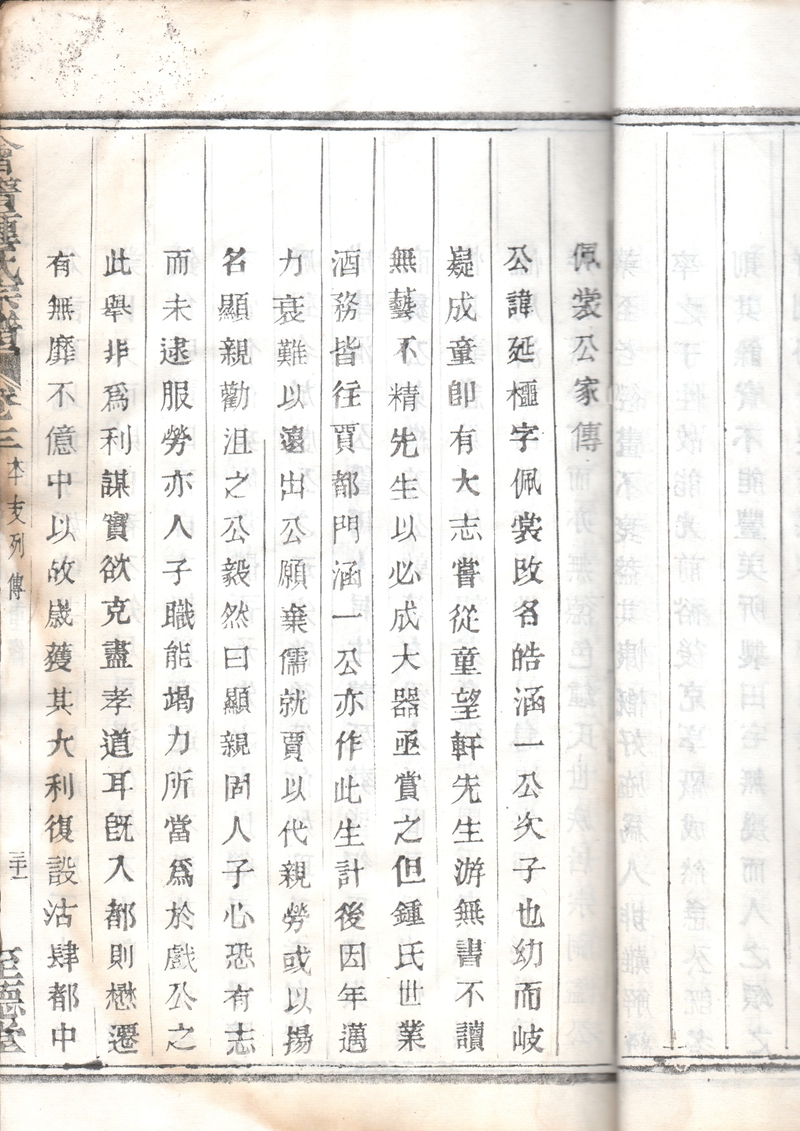 佩裳公家傳
公諱延櫮字佩裳改名皓涵一公次子也幼而岐
嶷成童即有大志嘗從童望軒先生游無書不讀
無藝不精先生以必成大器亟賞之但鍾氏世業
酒務皆往賈都門涵一公亦作此生計後因年邁
力衰難以遠出公願棄儒就賈以代親勞或以揚
名顯親勸沮之公毅然曰顯親固人子心恐有志
而未逮服勞亦人子職能竭力所當爲於戲公之
此舉非爲利謀實欲克盡孝道耳旣入都則懋遷
有無靡不億中以故歲獲其大利復設沽肆都中
氏宗譜 卷三 本支列傳 三十一 至德堂